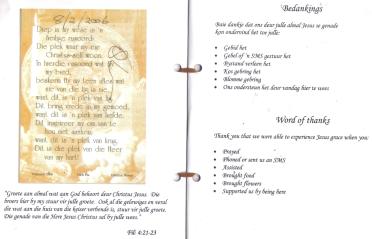 8/2/2006
Diep in my
heilige
Die plek waar my
Christus-self woon.
In hierdie
my hart,
beskerm
wat
want dit is 'n plek van
Dit bring vrede in my gemoed,
want dit is 'n plek van liefde.
Dit inspireer my om aan te
hou met
want dit is 'n plek van krag.
Dit is die plek van die Heer
van my hart!
"Groete aan almal wat aan God behoort deur Christus Jesus. Die
broers hier by my stuur vir julle groete. Ook al die gelowiges en veral
die wat aan die huis van die keiser verbonde is, stuur vir julle groete.
Die genade van die Here Jesus Christus sal by julle wees."
Fil 4:21-23
Bedankings
Baie dankie dat ons deur julle almal Jesus se genade
kon ondervind het toe julle:
Gebid het
Gebel of 'n SMS gestuur het
Bystand verleen het
Kos gebring het
Blomme gebring
Ons ondersteun het deur vandag hier te wees
Word of thanks
Thank you that we were able to experience Jesus grace when you:
Prayed
Phoned or sent us an SMS
Assisted
Brought food
Brought flowers
Supported us by being here